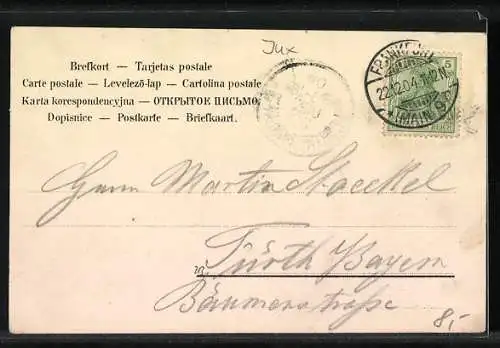 Jux
Brefkort — Tarjetas postale
Carte postale — Levelező-lap — Cartolina postale
Karta korespondencyjna — ОТКРЫТОЕ ПИСЬМО
Dopisnice — Postkarte — Briefkaart.
FRANKFURT
22.12.04.
(MAIN) 9
5
REICH
Herrn Martin Stoeckel
in Fürth Bayern
Bäumenstraße
8,-